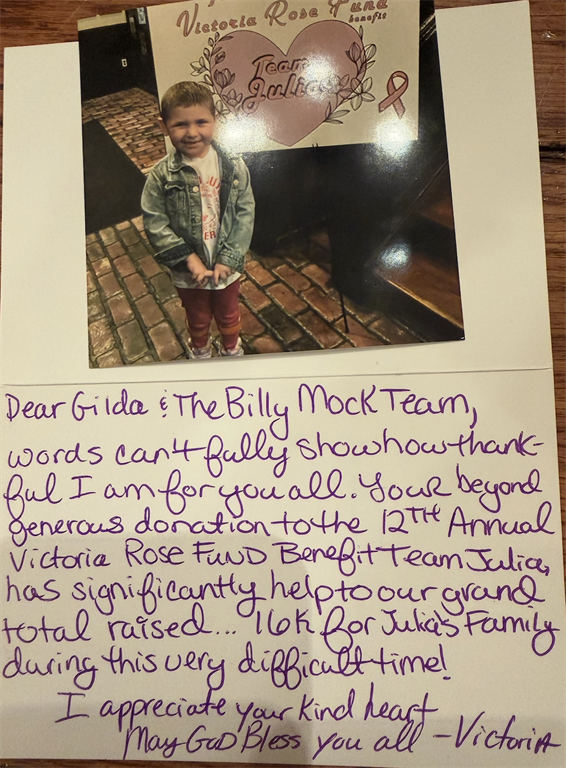 Victoria Rose Fund
benefit
Team
Julia
Dear Gilda & The Billy Mock Team,
words can't fully show how thank-
ful I am for you all. Your beyond
generous donation to the 12TH Annual
Victoria Rose Fund Benefit Team Julia,
has significantly help to our grand
total raised... 16K for Julia's Family
during this very difficult time!
I appreciate your kind heart
May God Bless you all - Victoria